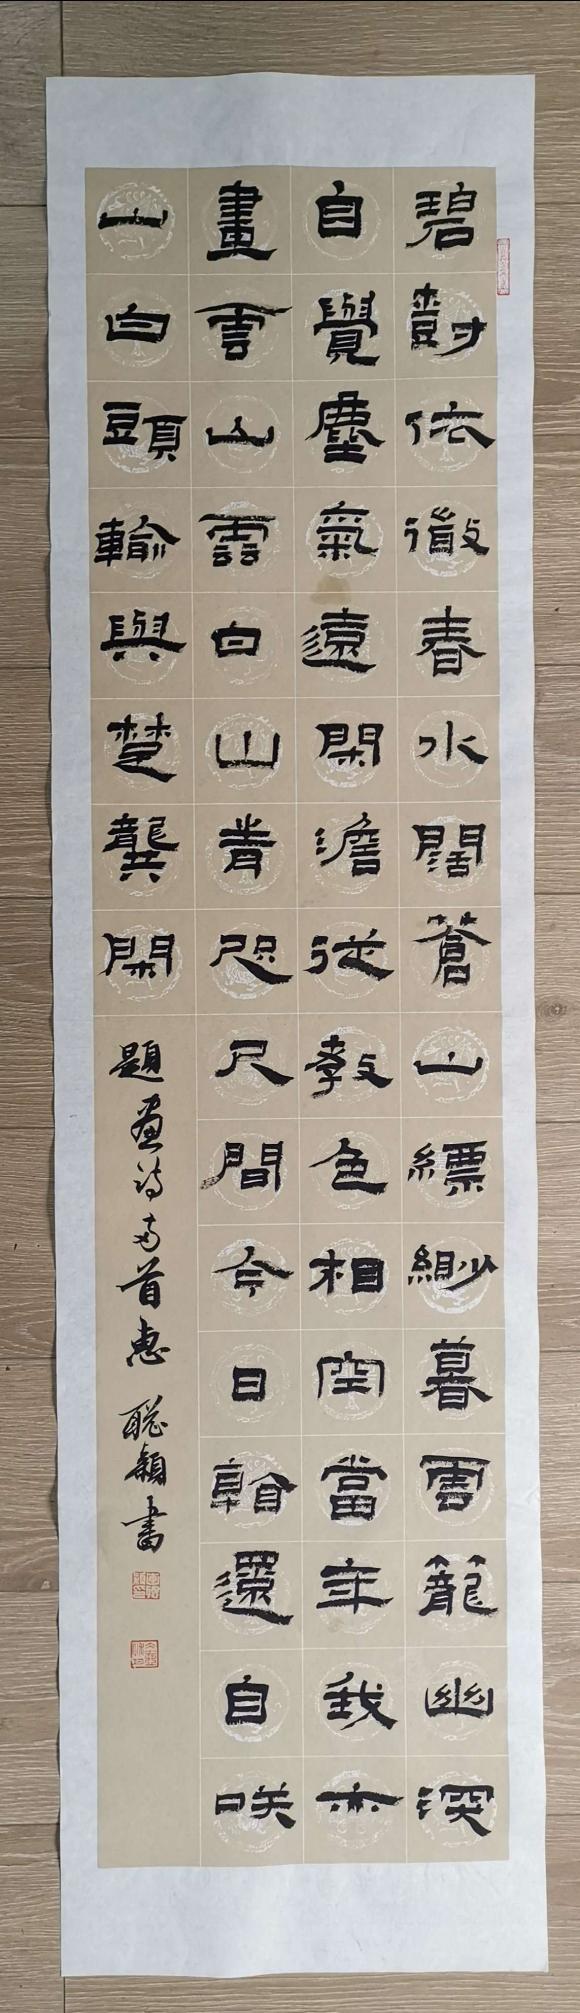 碧樹依微春水闊蒼山縹緲暮雲籠幽深
自覺塵氣遠閑澹從教色相空當年我亦
畫雲山雲白山青咫尺間今日看還自咲
山白頭輸與楚龔閑
題畫詩兩首惠聰穎書